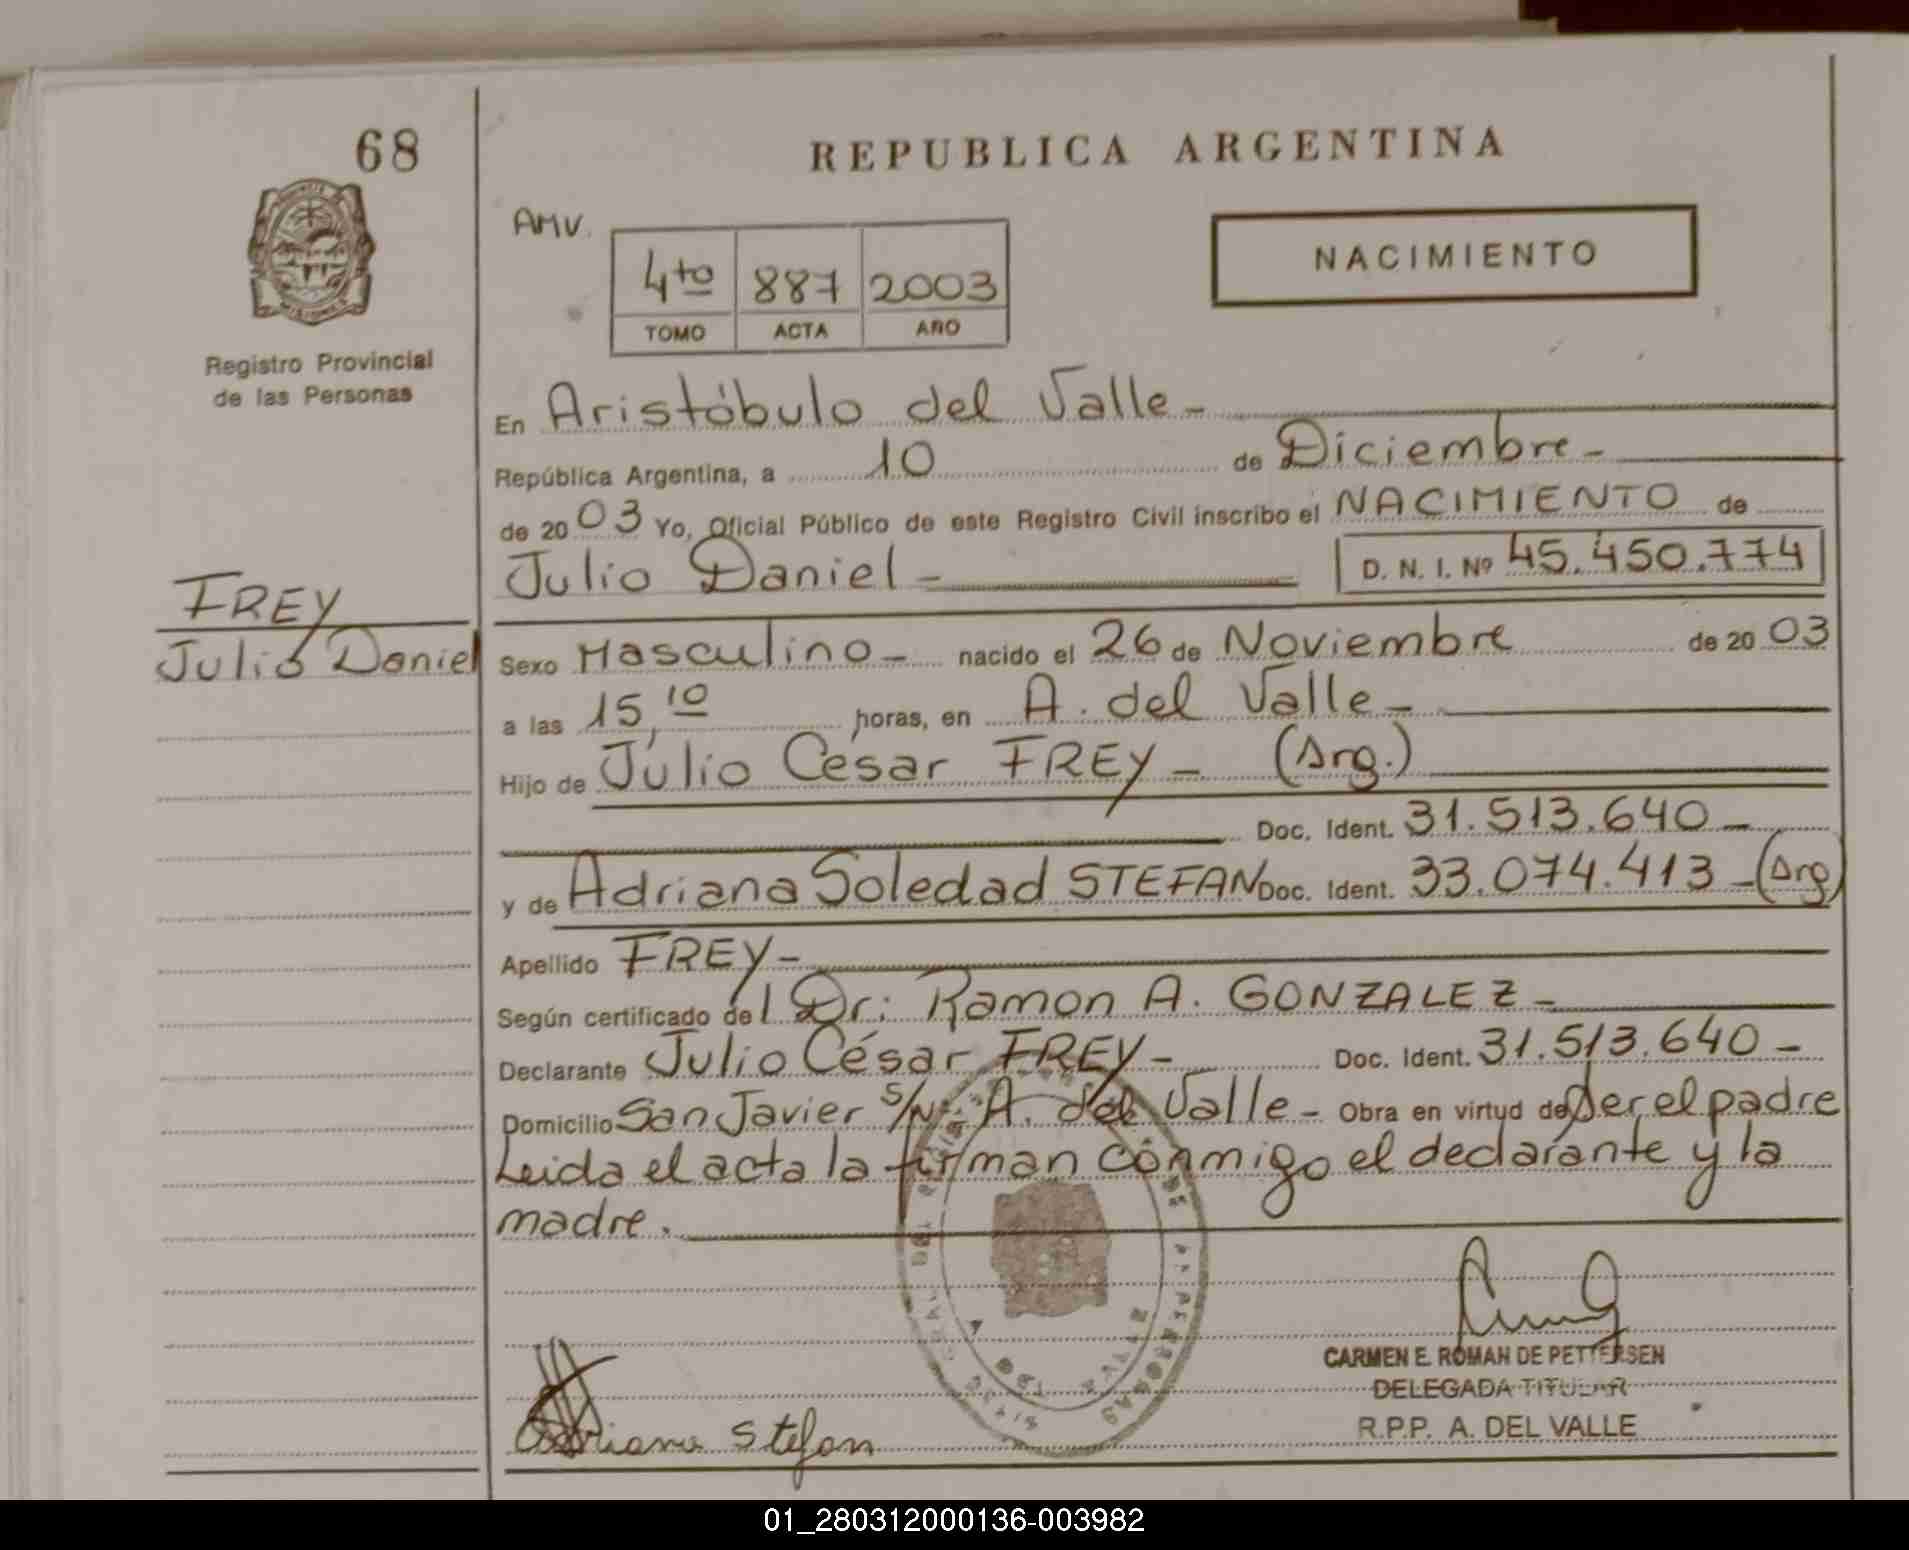 68
REPUBLICA ARGENTINA
AMV.
4to 887 2003
TOMO ACTA AÑO
NACIMIENTO
Registro Provincial
de las Personas
En Aristóbulo del Valle -
República Argentina, a 10 de Diciembre -
de 2003 Yo, Oficial Público de este Registro Civil inscribo el NACIMIENTO de
Julio Daniel - D. N. I. Nº 45.450.774
FREY
Julio Daniel
Sexo Masculino - nacido el 26 de Noviembre de 2003
a las 15,10 horas, en A. del Valle -
Hijo de Julio César FREY - (Arg.)
Doc. Ident. 31.513.640 -
y de Adriana Soledad STEFAN Doc. Ident. 33.074.413 - (Arg)
Apellido FREY -
Según certificado del Dr: Ramon A. GONZALEZ -
Declarante Julio César FREY - Doc. Ident. 31.513.640 -
Domicilio San Javier s/Nº A. del Valle - Obra en virtud de Ser el padre
Leida el acta la firman conmigo el declarante y la
madre.
CARMEN E. ROMAN DE PETTERSEN
DELEGADA TITULAR
R.P.P. A. DEL VALLE
Adriana Stefan
01_280312000136-003982